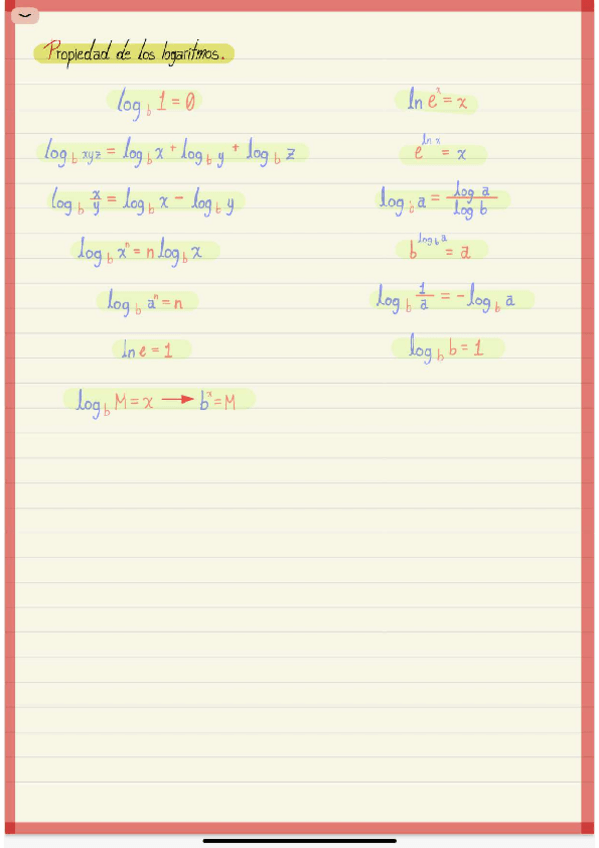 Propiedad de los logaritmos.
log_b 1 = 0
ln e^x = x
log_b xyz = log_b x + log_b y + log_b z
e^{ln x} = x
log_b x/y = log_b x - log_b y
log_b a = log a / log b
log_b x^n = n log_b x
b^{log_b a} = a
log_b a^n = n
log_b 1/a = - log_b a
ln e = 1
log_b b = 1
log_b M = x → b^x = M